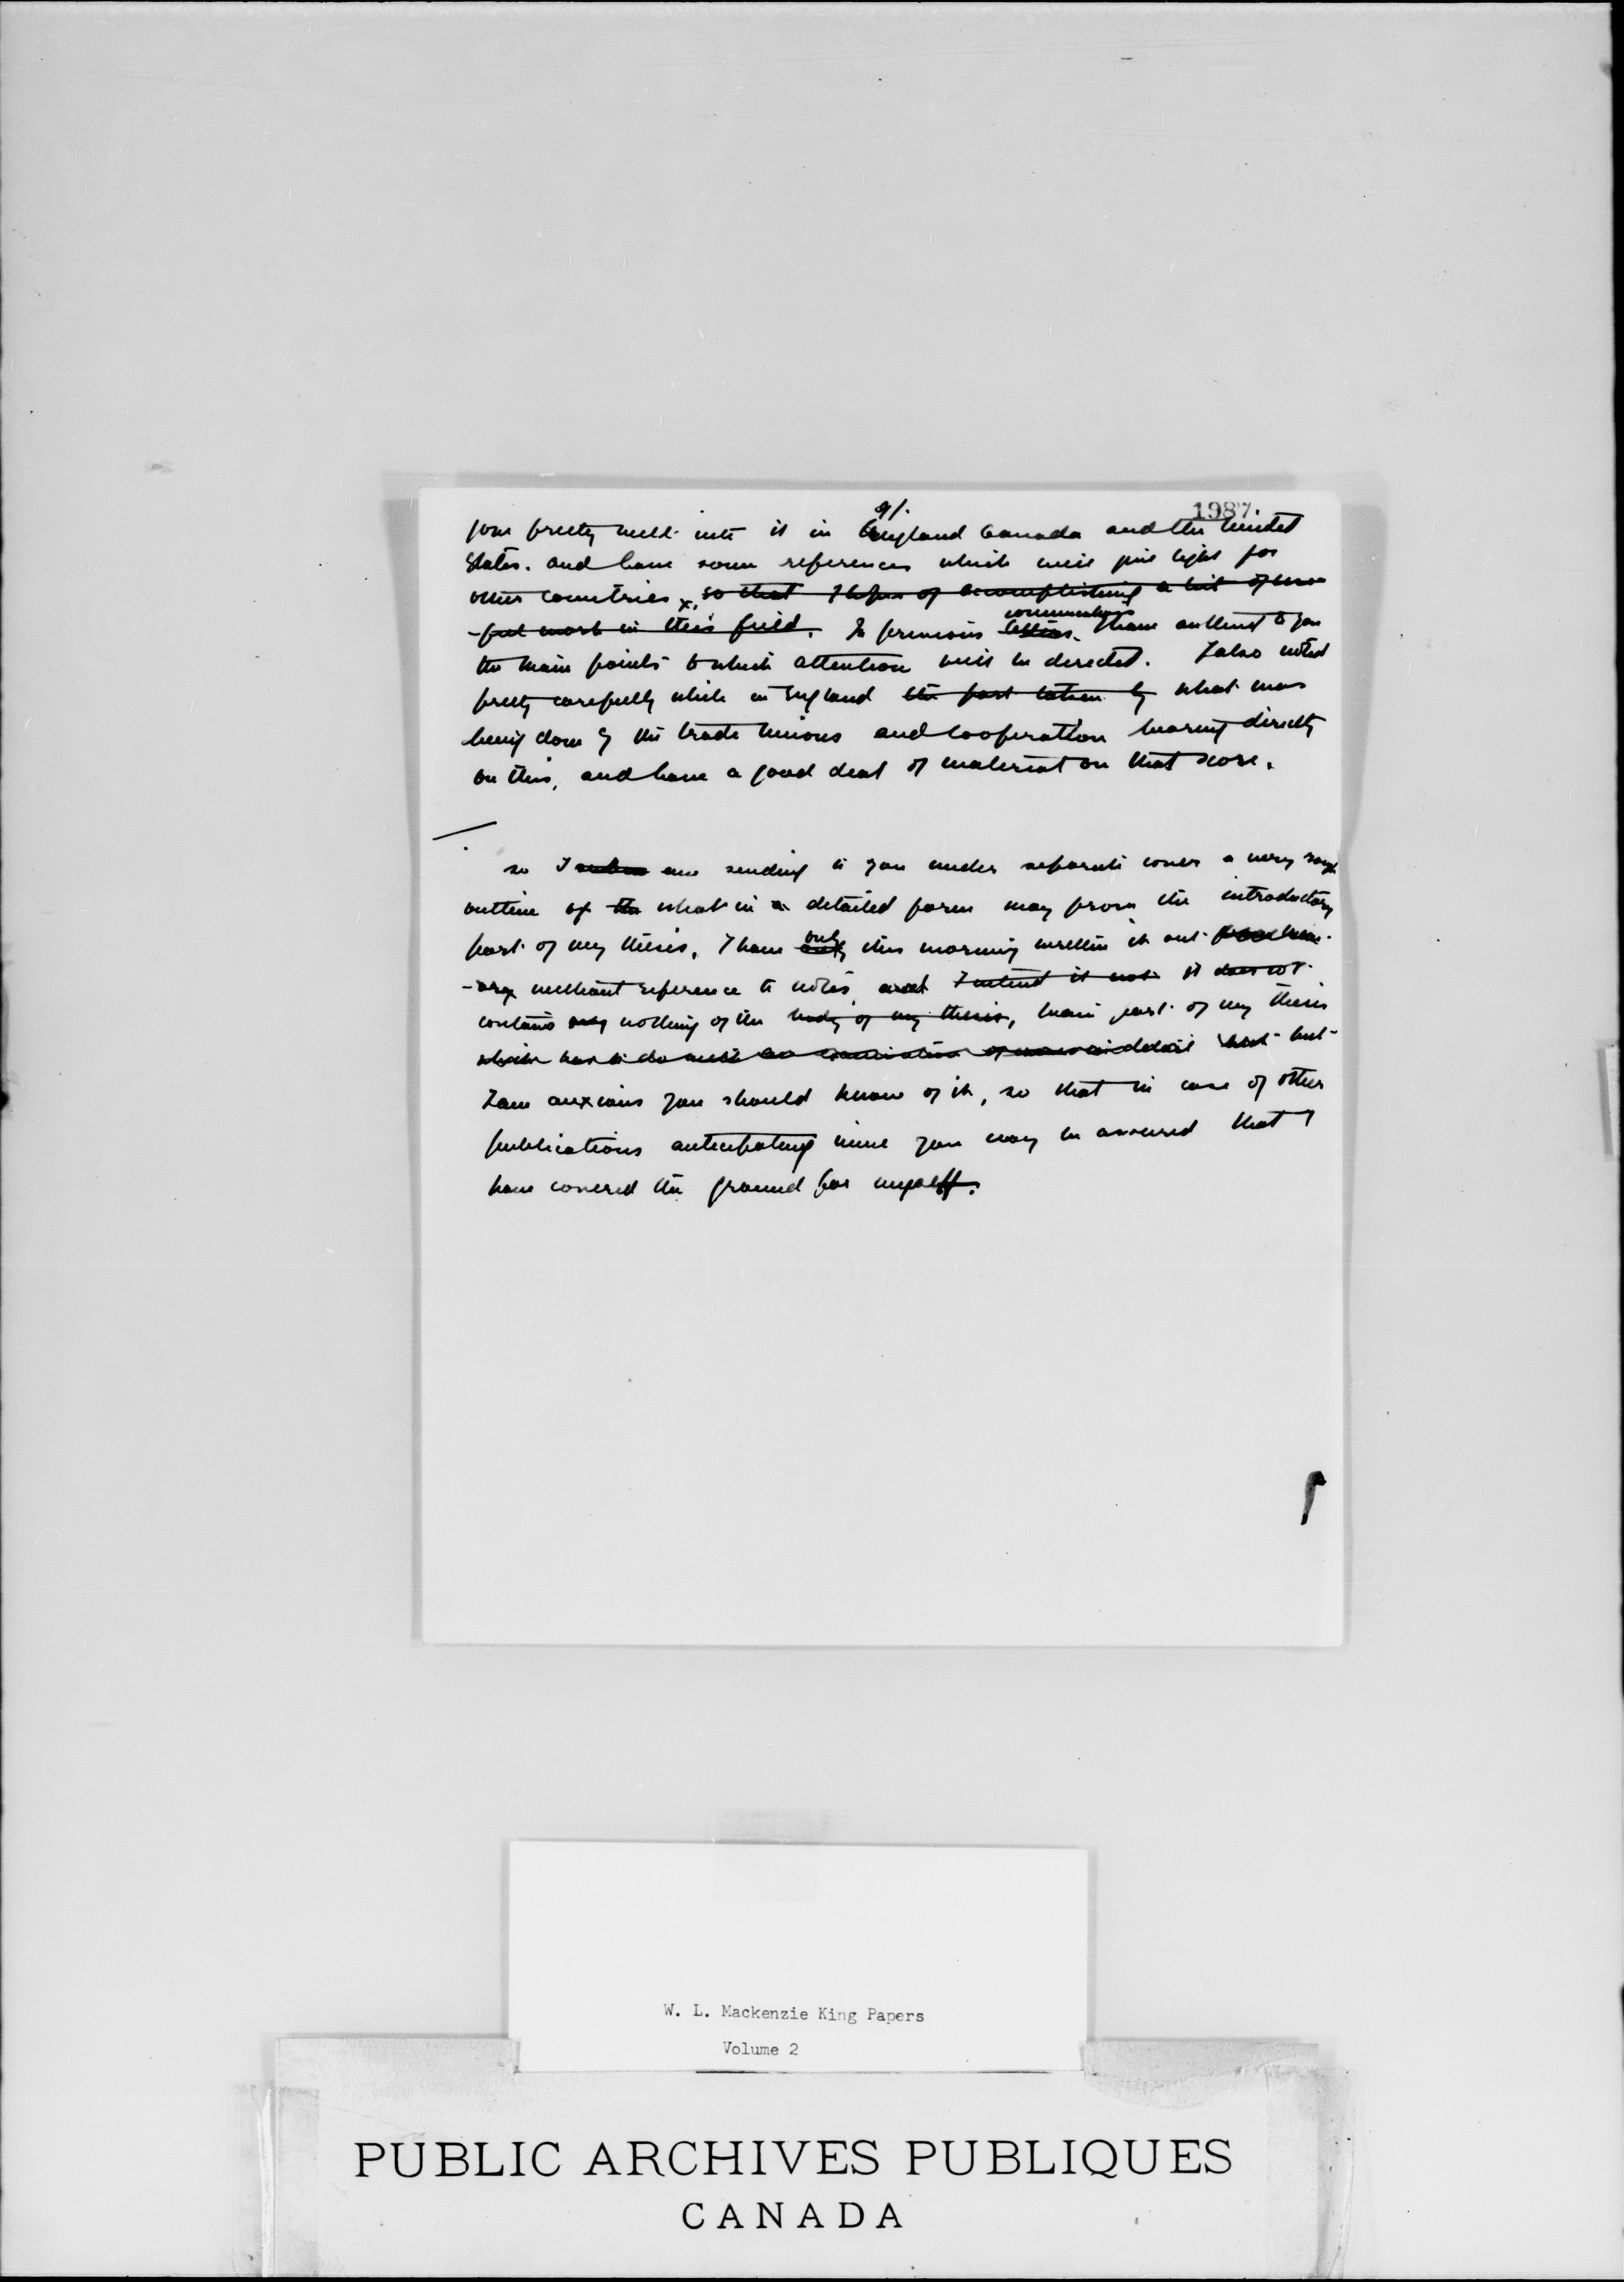 9/.
1987.
gone pretty well into it in England Canada and the United
States. and have some references which will give light for
other countries, so that I hope of accomplishing a bit of use
-ful work in this field. In previous letters. communications I have outlined to you
the main points to which attention will be directed. I also noted
pretty carefully while in England the part taken by what was
being done by the trade unions and cooperation bearing directly
on this, and have a good deal of material on that score.
so I am sending to you under separate cover a very rough
outline of the what in a detailed form may prove the introductory
part of my thesis. I have only this morning written it out
without reference to notes and I intend it not it does not
contains only nothing of the body of my thesis, main part of my thesis
which has to do with an examination of in detail but but
I am anxious you should know of it, so that in case of other
publications anticipating mine you may be assured that I
have covered the ground for myself.
W. L. Mackenzie King Papers
Volume 2
PUBLIC ARCHIVES PUBLIQUES
CANADA